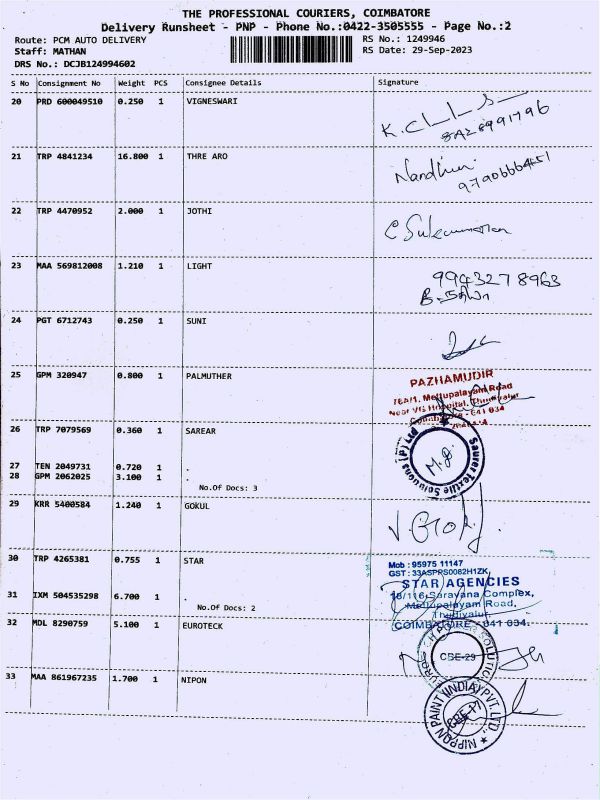 THE PROFESSIONAL COURIERS, COIMBATORE
Delivery Runsheet - PNP - Phone No.:0422-3505555 - Page No.:2
Route: PCM AUTO DELIVERY RS No.: 1249946
Staff: MATHAN RS Date: 29-Sep-2023
DRS No.: DCJB124994602
S No Consignment No Weight PCS Consignee Details Signature
20 PRD 600049510 0.250 1 VIGNESWARI
K.
8428991796
21 TRP 4841234 16.800 1 THRE ARO
Nandhini
9790666451
22 TRP 4470952 2.000 1 JOTHI
C Sukumaran
23 MAA 569812008 1.210 1 LIGHT
9943278963
24 PGT 6712743 0.250 1 SUNI
25 GPM 320947 0.800 1 PALMUTHER
PAZHAMUDIR
Mettupalayam Road
Near VG Hospital, Thudiyalur
Coimbatore - 641 034
26 TRP 7079569 0.360 1 SAREAR
Saurer Textile Solutions (P) Ltd
27 TEN 2049731 0.720 1 .
28 GPM 2062025 3.100 1 .
No.Of Docs: 3
29 KRR 5400584 1.240 1 GOKUL
30 TRP 4265381 0.755 1 STAR
Mob : 95975 11147
GST : 33ASPRS0082H1ZK
STAR AGENCIES
31 IXM 504535298 6.700 1 .
16/116, Saravana Complex,
Mettupalayam Road,
No.Of Docs: 2
Thudiyalur,
COIMBATORE - 641 034.
32 MDL 8290759 5.100 1 EUROTECK
CBE-29
33 MAA 861967235 1.700 1 NIPON
NIPPON PAINT (INDIA) PVT. LTD.,